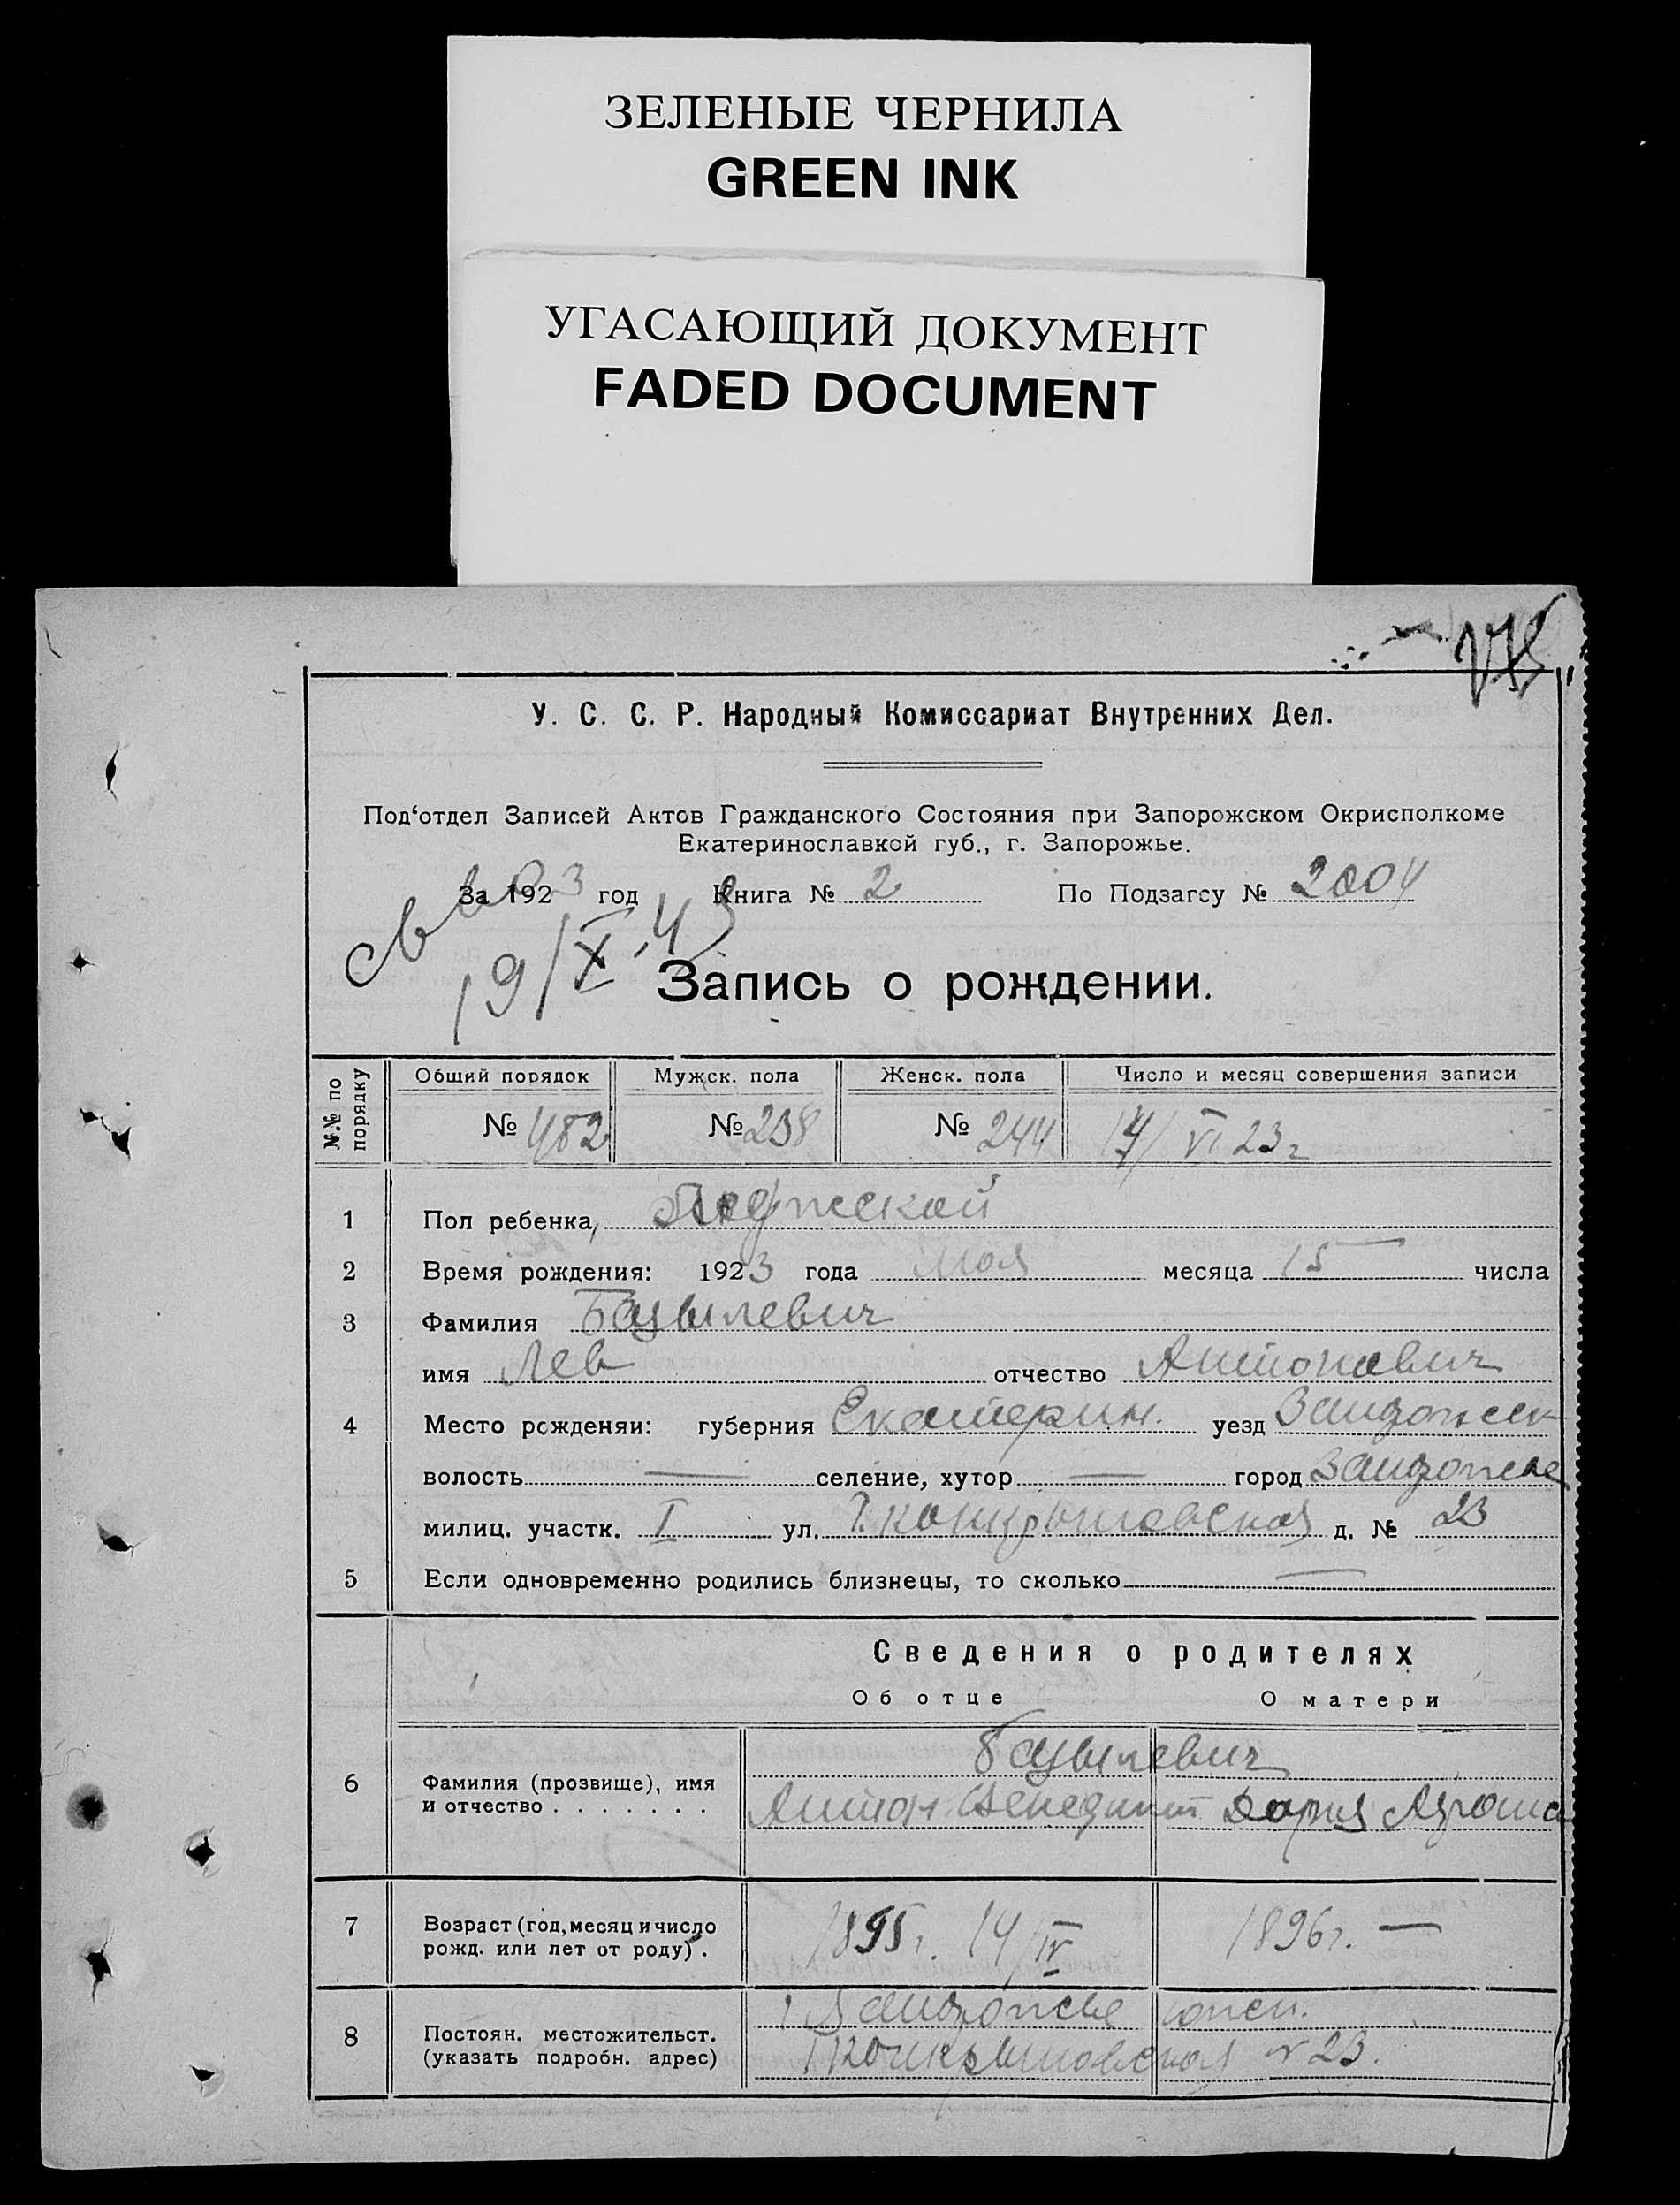 ЗЕЛЕНЫЕ ЧЕРНИЛА
GREEN INK
УГАСАЮЩИЙ ДОКУМЕНТ
FADED DOCUMENT
У. С. С. Р. Народный Комиссариат Внутренних Дел.
Под‘отдел Записей Актов Гражданского Состояния при Запорожском Окрисполкоме
Екатеринославкой губ., г. Запорожье.
За 1923 год Книга № 2 По Подзагсу № 2004
19/X-43
Запись о рождении.
№.№ по порядку
Общий порядок Мужск. пола Женск. пола Число и месяц совершения записи
№ 482 № 238 № 244 14/VI 23 г
1 Пол ребенка, Мужеской
2 Время рождения: 1923 года мая месяца 15 числа
3 Фамилия Бацылевич
имя Лев отчество Антонович
4 Место рожденяи: губерния Екатерин. уезд
волость — селение, хутор — город Запорожье
милиц. участк. I ул. д. № 23
5 Если одновременно родились близнецы, то сколько —
Сведения о родителях
Об отце О матери
6 Фамилия (прозвище), имя и отчество . . . . . . . Бацылевич
Антон Венедикт Дария
7 Возраст (год, месяц и число рожд. или лет от роду) . 1895 г. 14/IV 1896 г. —
8 Постоян. местожительст. (указать подробн. адрес) Запорожье
№ 23.